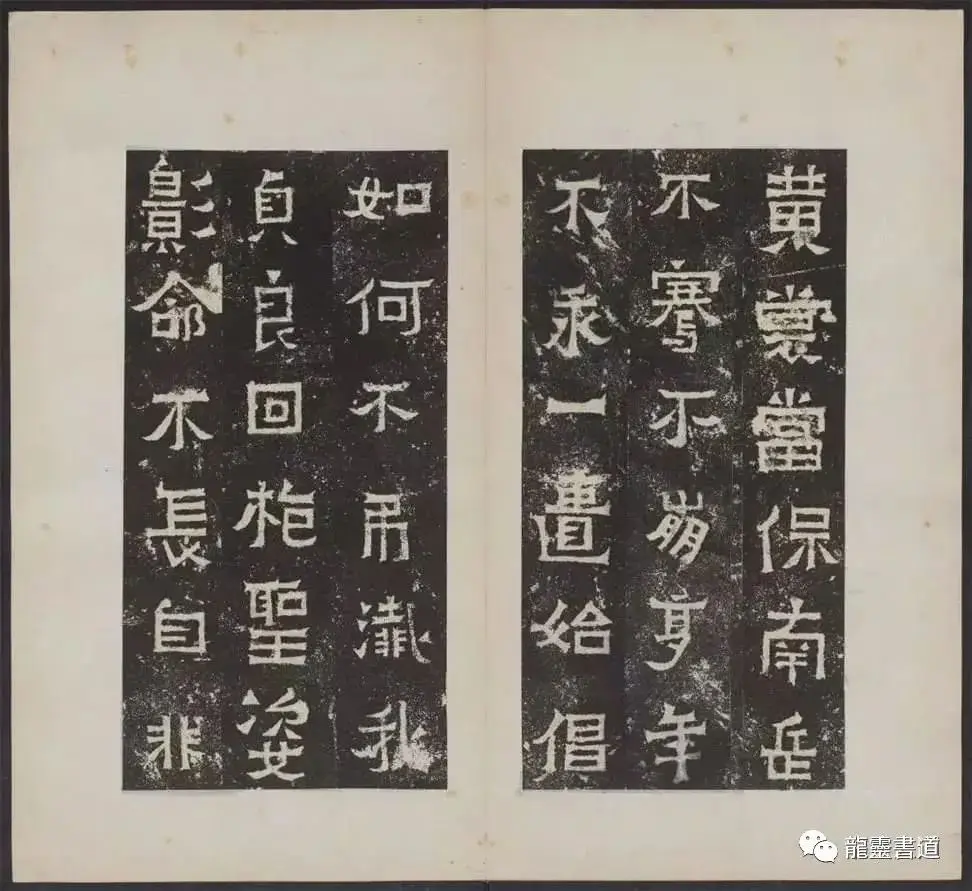 黃裳當保南岳
不騫不崩享年
不永一匱始倡
如何不弔殲我
貞良回抱聖姿
影命不長自非
龍靈書道